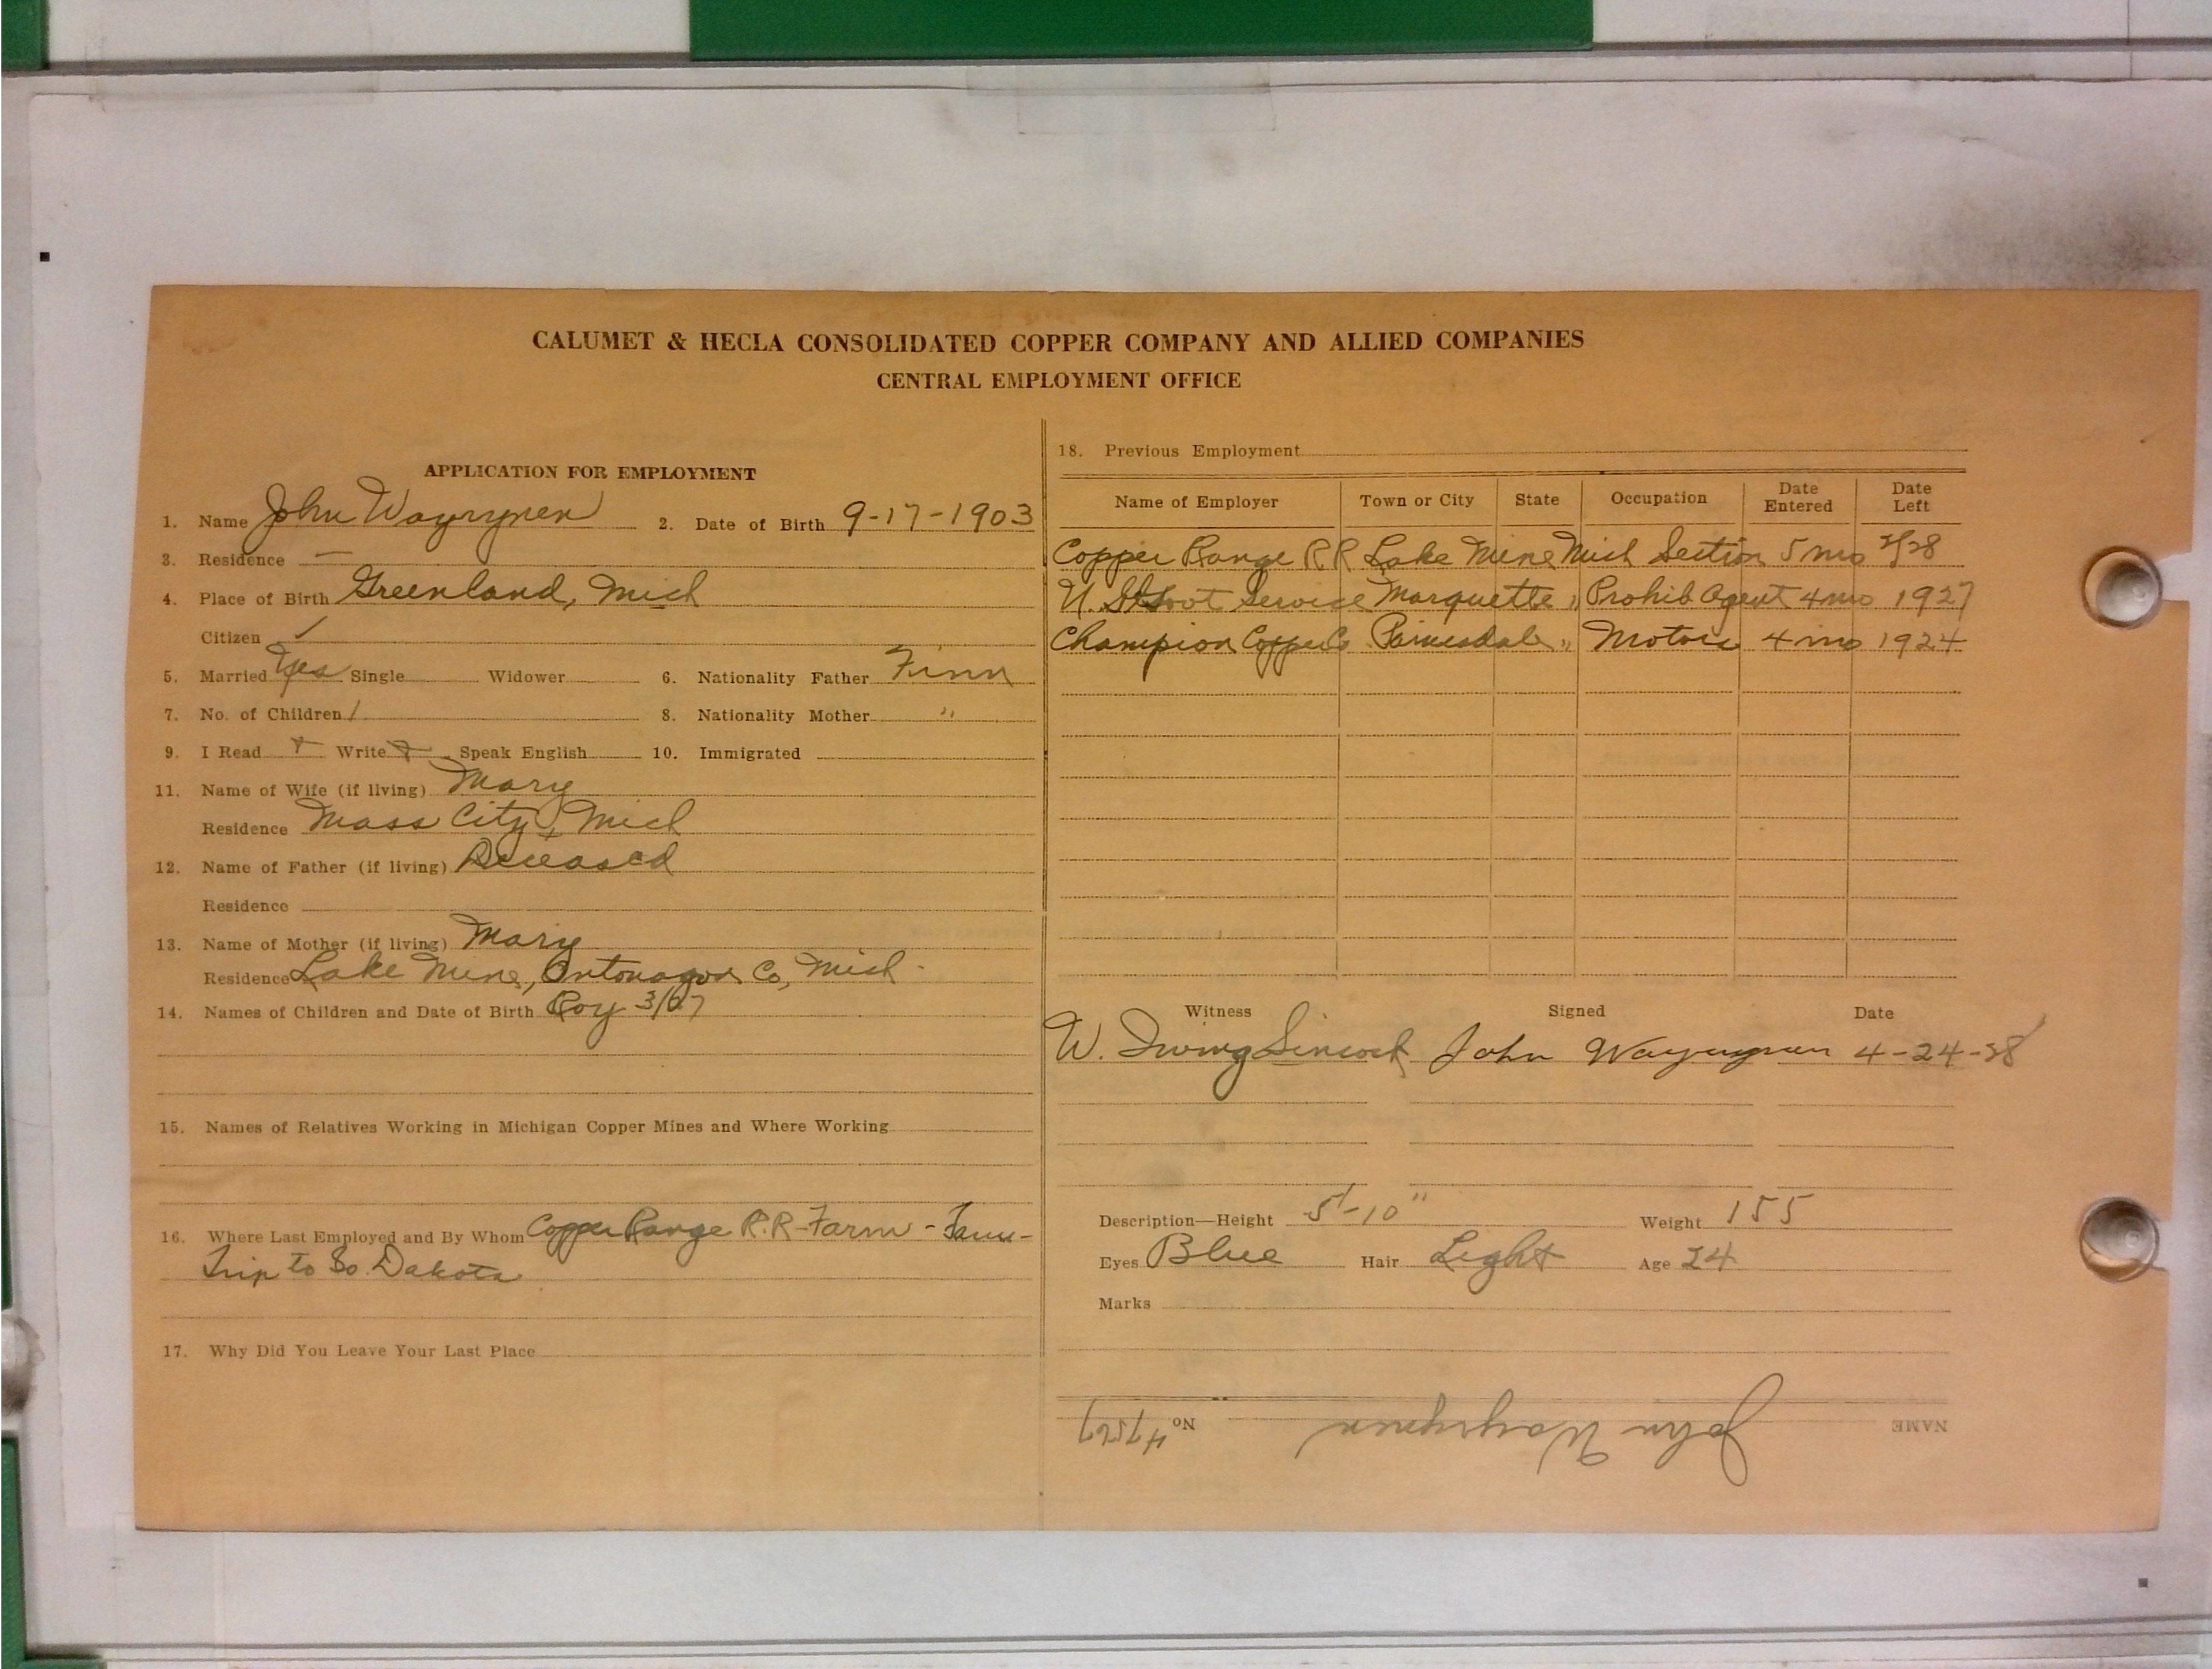 CALUMET & HECLA CONSOLIDATED COPPER COMPANY AND ALLIED COMPANIES
CENTRAL EMPLOYMENT OFFICE
APPLICATION FOR EMPLOYMENT
1. Name John Wayrynen 2. Date of Birth 9-17-1903
3. Residence —
4. Place of Birth Greenland, Mich
Citizen ✓
5. Married Yes Single Widower 6. Nationality Father Finn
7. No. of Children 1 8. Nationality Mother "
9. I Read Write Speak English 10. Immigrated
11. Name of Wife (if living) Mary
Residence Mass City, Mich
12. Name of Father (if living) Deceased
Residence
13. Name of Mother (if living) Mary
Residence Lake Mine, Ontonagon Co, Mich.
14. Names of Children and Date of Birth Roy 3/27
15. Names of Relatives Working in Michigan Copper Mines and Where Working
16. Where Last Employed and By Whom Copper Range R.R - Farm -
Trip to So. Dakota
17. Why Did You Leave Your Last Place
18. Previous Employment
Name of Employer Town or City State Occupation Date Entered Date Left
Copper Range RR Lake Mine Mich Section 5 mo 2/28
U. S. Govt Service Marquette " Prohib Agent 4 mo 1927
Champion Copper Co Painesdale " Motor 4 mo 1924
Witness Signed Date
W. Irving John Wayrynen 4-24-28
Description—Height 5'-10" Weight 155
Eyes Blue Hair Light Age 24
Marks
NAME John Wayrynen No. 47567